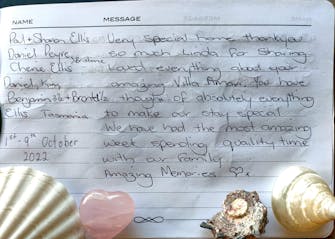 NAME MESSAGE
Pat + Sharon Ellis Very special home thankyou
Daniel Payre so much Linda for sharing
Cherie Ellis Loved everything about your
Daniel, King amazing Villa Aman. You have
Benjamin + Bronte's thought of absolutely everything
Ellis Tasmania to make our stay special.
We have had the most amazing
1st - 9th October week spending quality time
2022 with our family
Amazing Memories